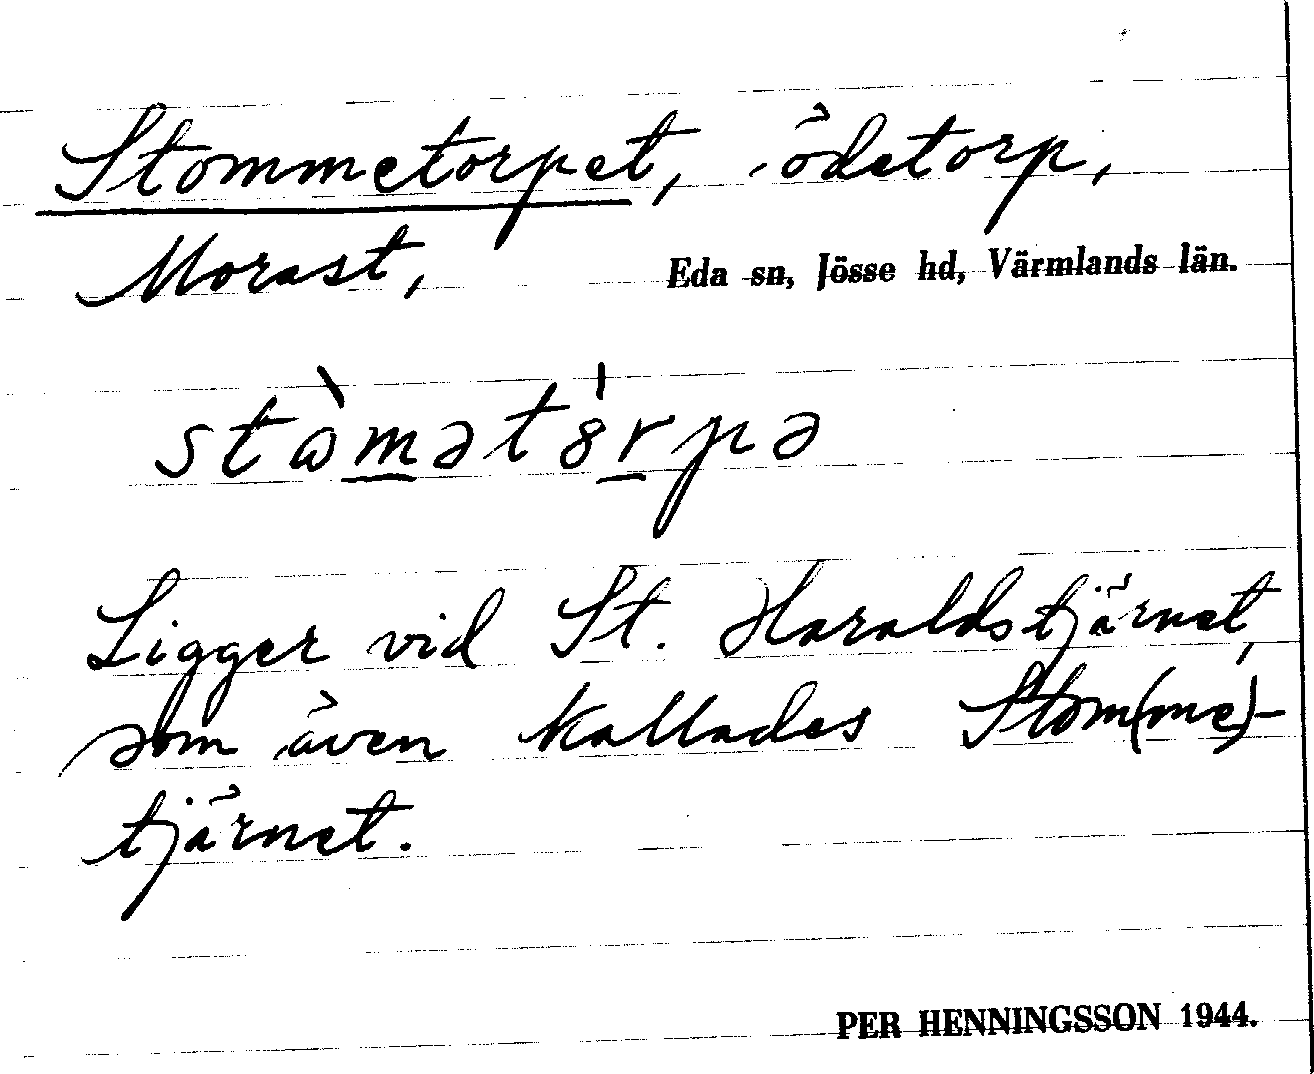 Stommetorpet, ödetorp,
Morast, Eda sn, Jösse hd, Värmlands län.
stὼmǝtȣ́rpǝ
Ligger vid St. Haraldstjärnet,
som även kallades Stom(me)-
tjärnet.
PER HENNINGSSON 1944.